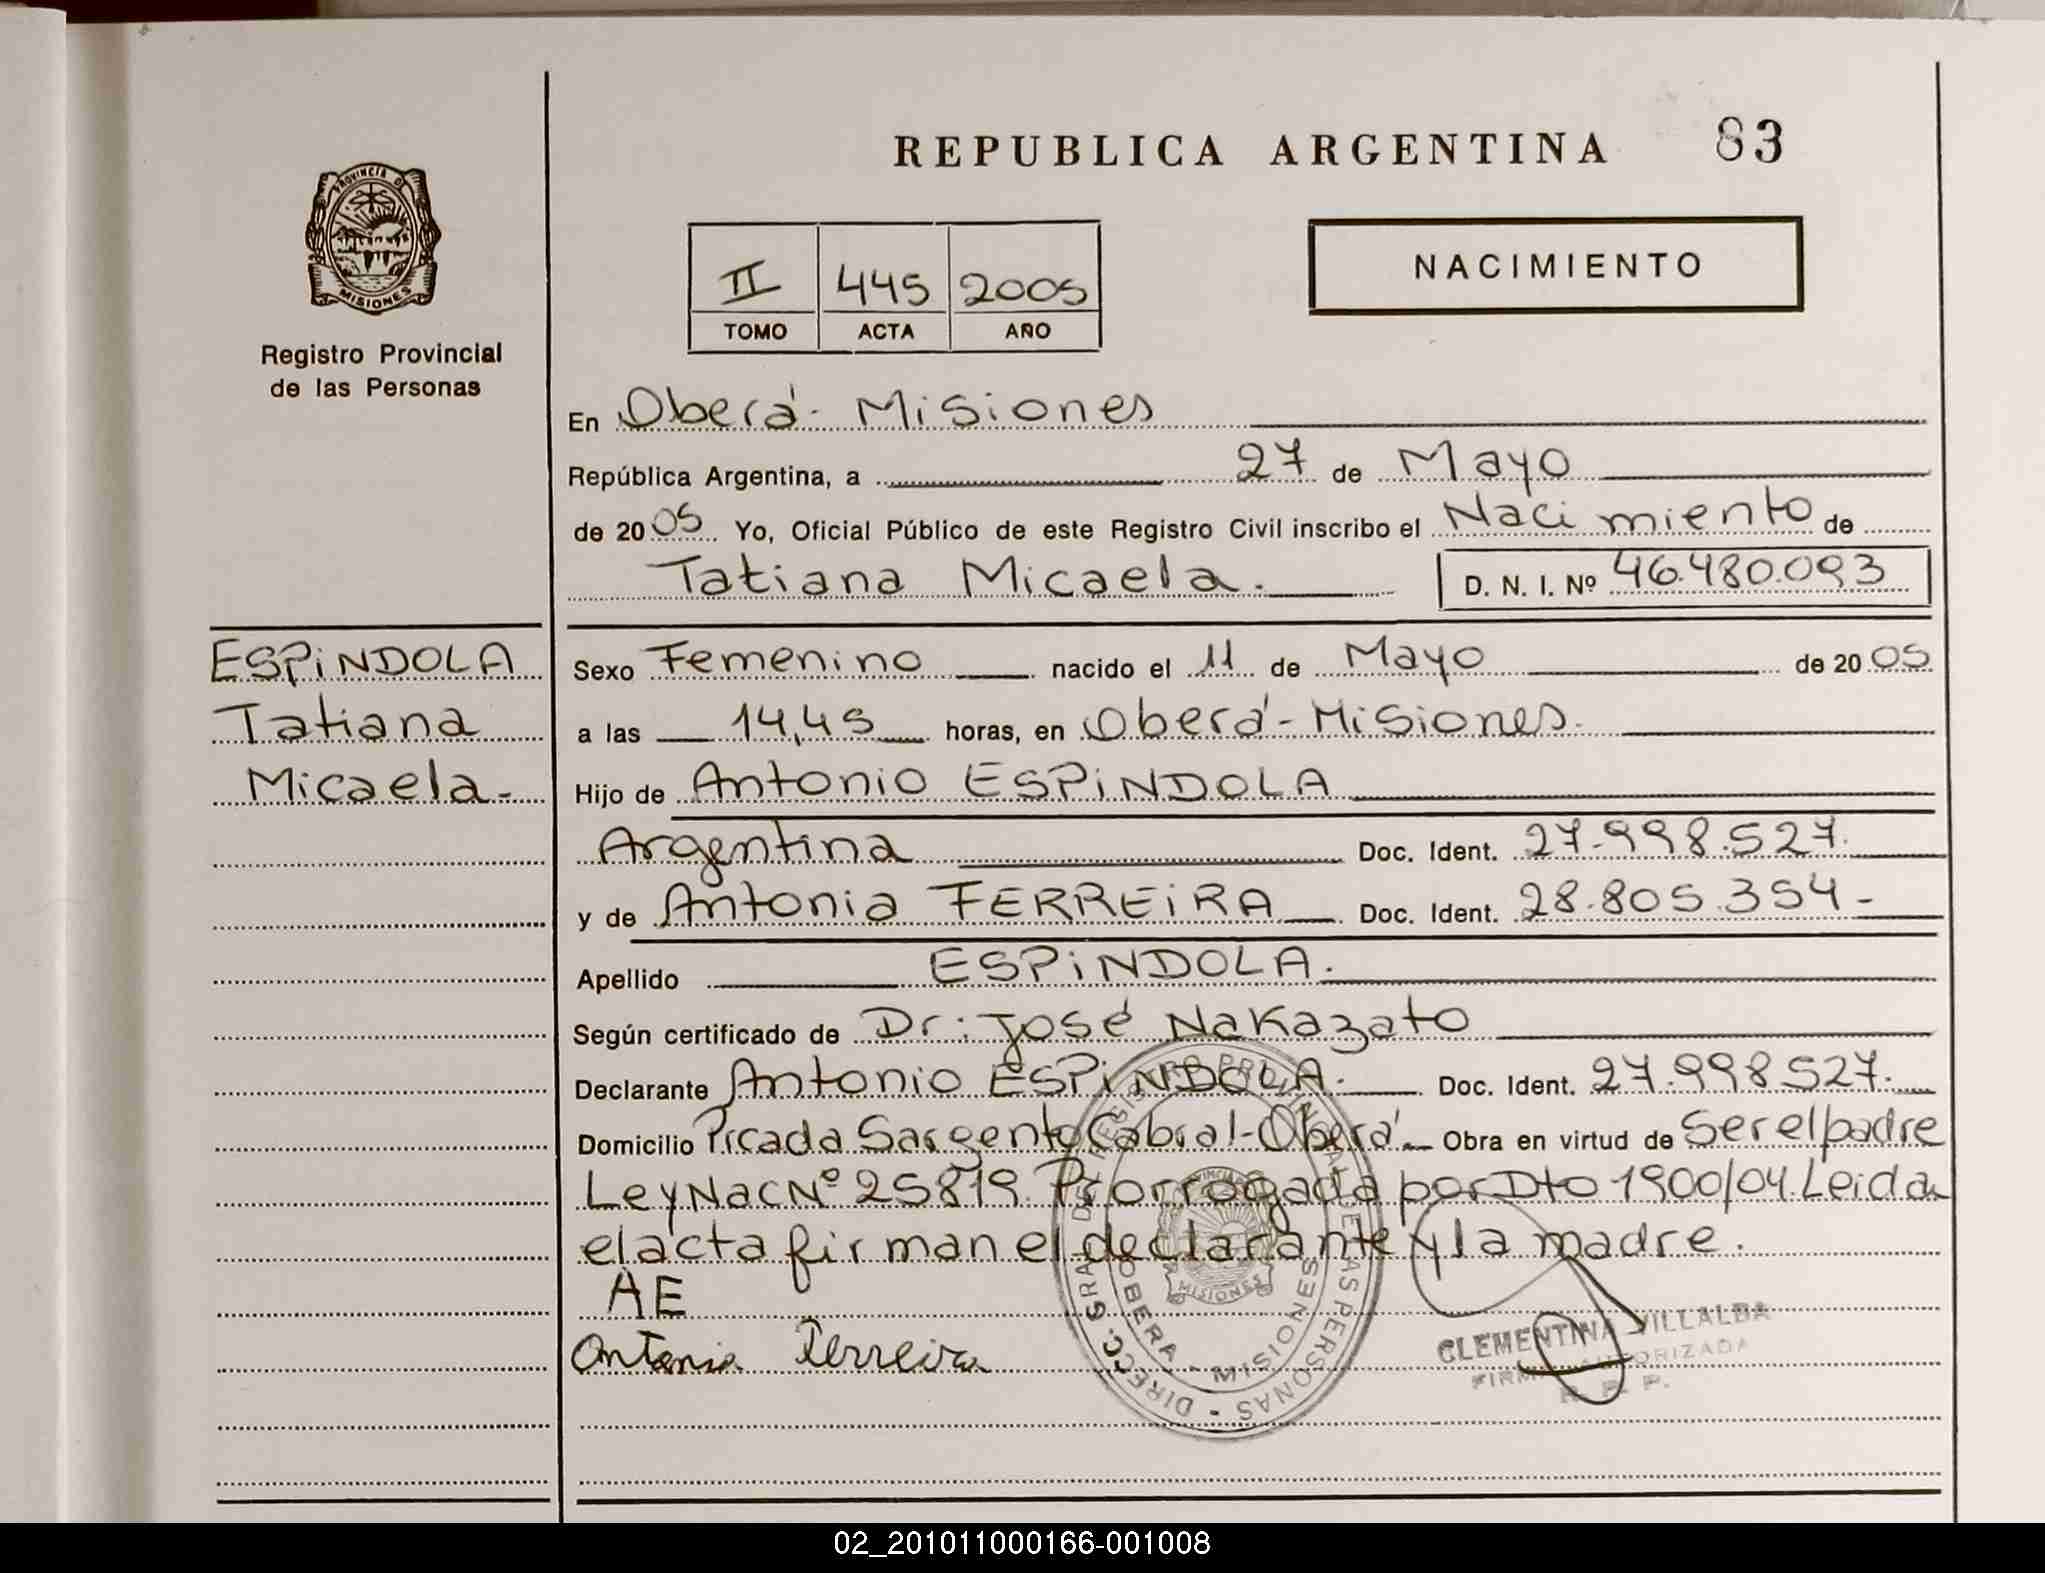 REPUBLICA ARGENTINA 83
PROVINCIA DE
MISIONES
Registro Provincial
de las Personas
II 445 2005
TOMO ACTA AÑO
NACIMIENTO
En Oberá - Misiones
República Argentina, a 27 de Mayo
de 2005 Yo, Oficial Público de este Registro Civil inscribo el Nacimiento de
Tatiana Micaela. D. N. I. Nº 46.480.093
ESPINDOLA
Tatiana
Micaela-
Sexo Femenino nacido el 11 de Mayo de 2005
a las 14,45 horas, en Oberá - Misiones.
Hijo de Antonio ESPINDOLA
Argentina Doc. Ident. 27.998.527.
y de Antonia FERREIRA Doc. Ident. 28.805.354-
Apellido ESPINDOLA.
Según certificado de Dr: José Nakazato
Declarante Antonio ESPINDOLA. Doc. Ident. 27.998527.
Domicilio Picada Sargento Cabral - Oberá Obra en virtud de Ser el padre
Ley Nac Nº 25819 Prorrogada por Dto 1900/04 Leida
el acta firman el declarante y la madre.
AE
Antonia Ferreira
DIRECC. GRAL. DEL REGISTRO PROVINCIAL DE LAS PERSONAS
OBERA - MISIONES
MISIONES
CLEMENTINA VILLALBA
FIRMA AUTORIZADA
R. P. P.
02_201011000166-001008